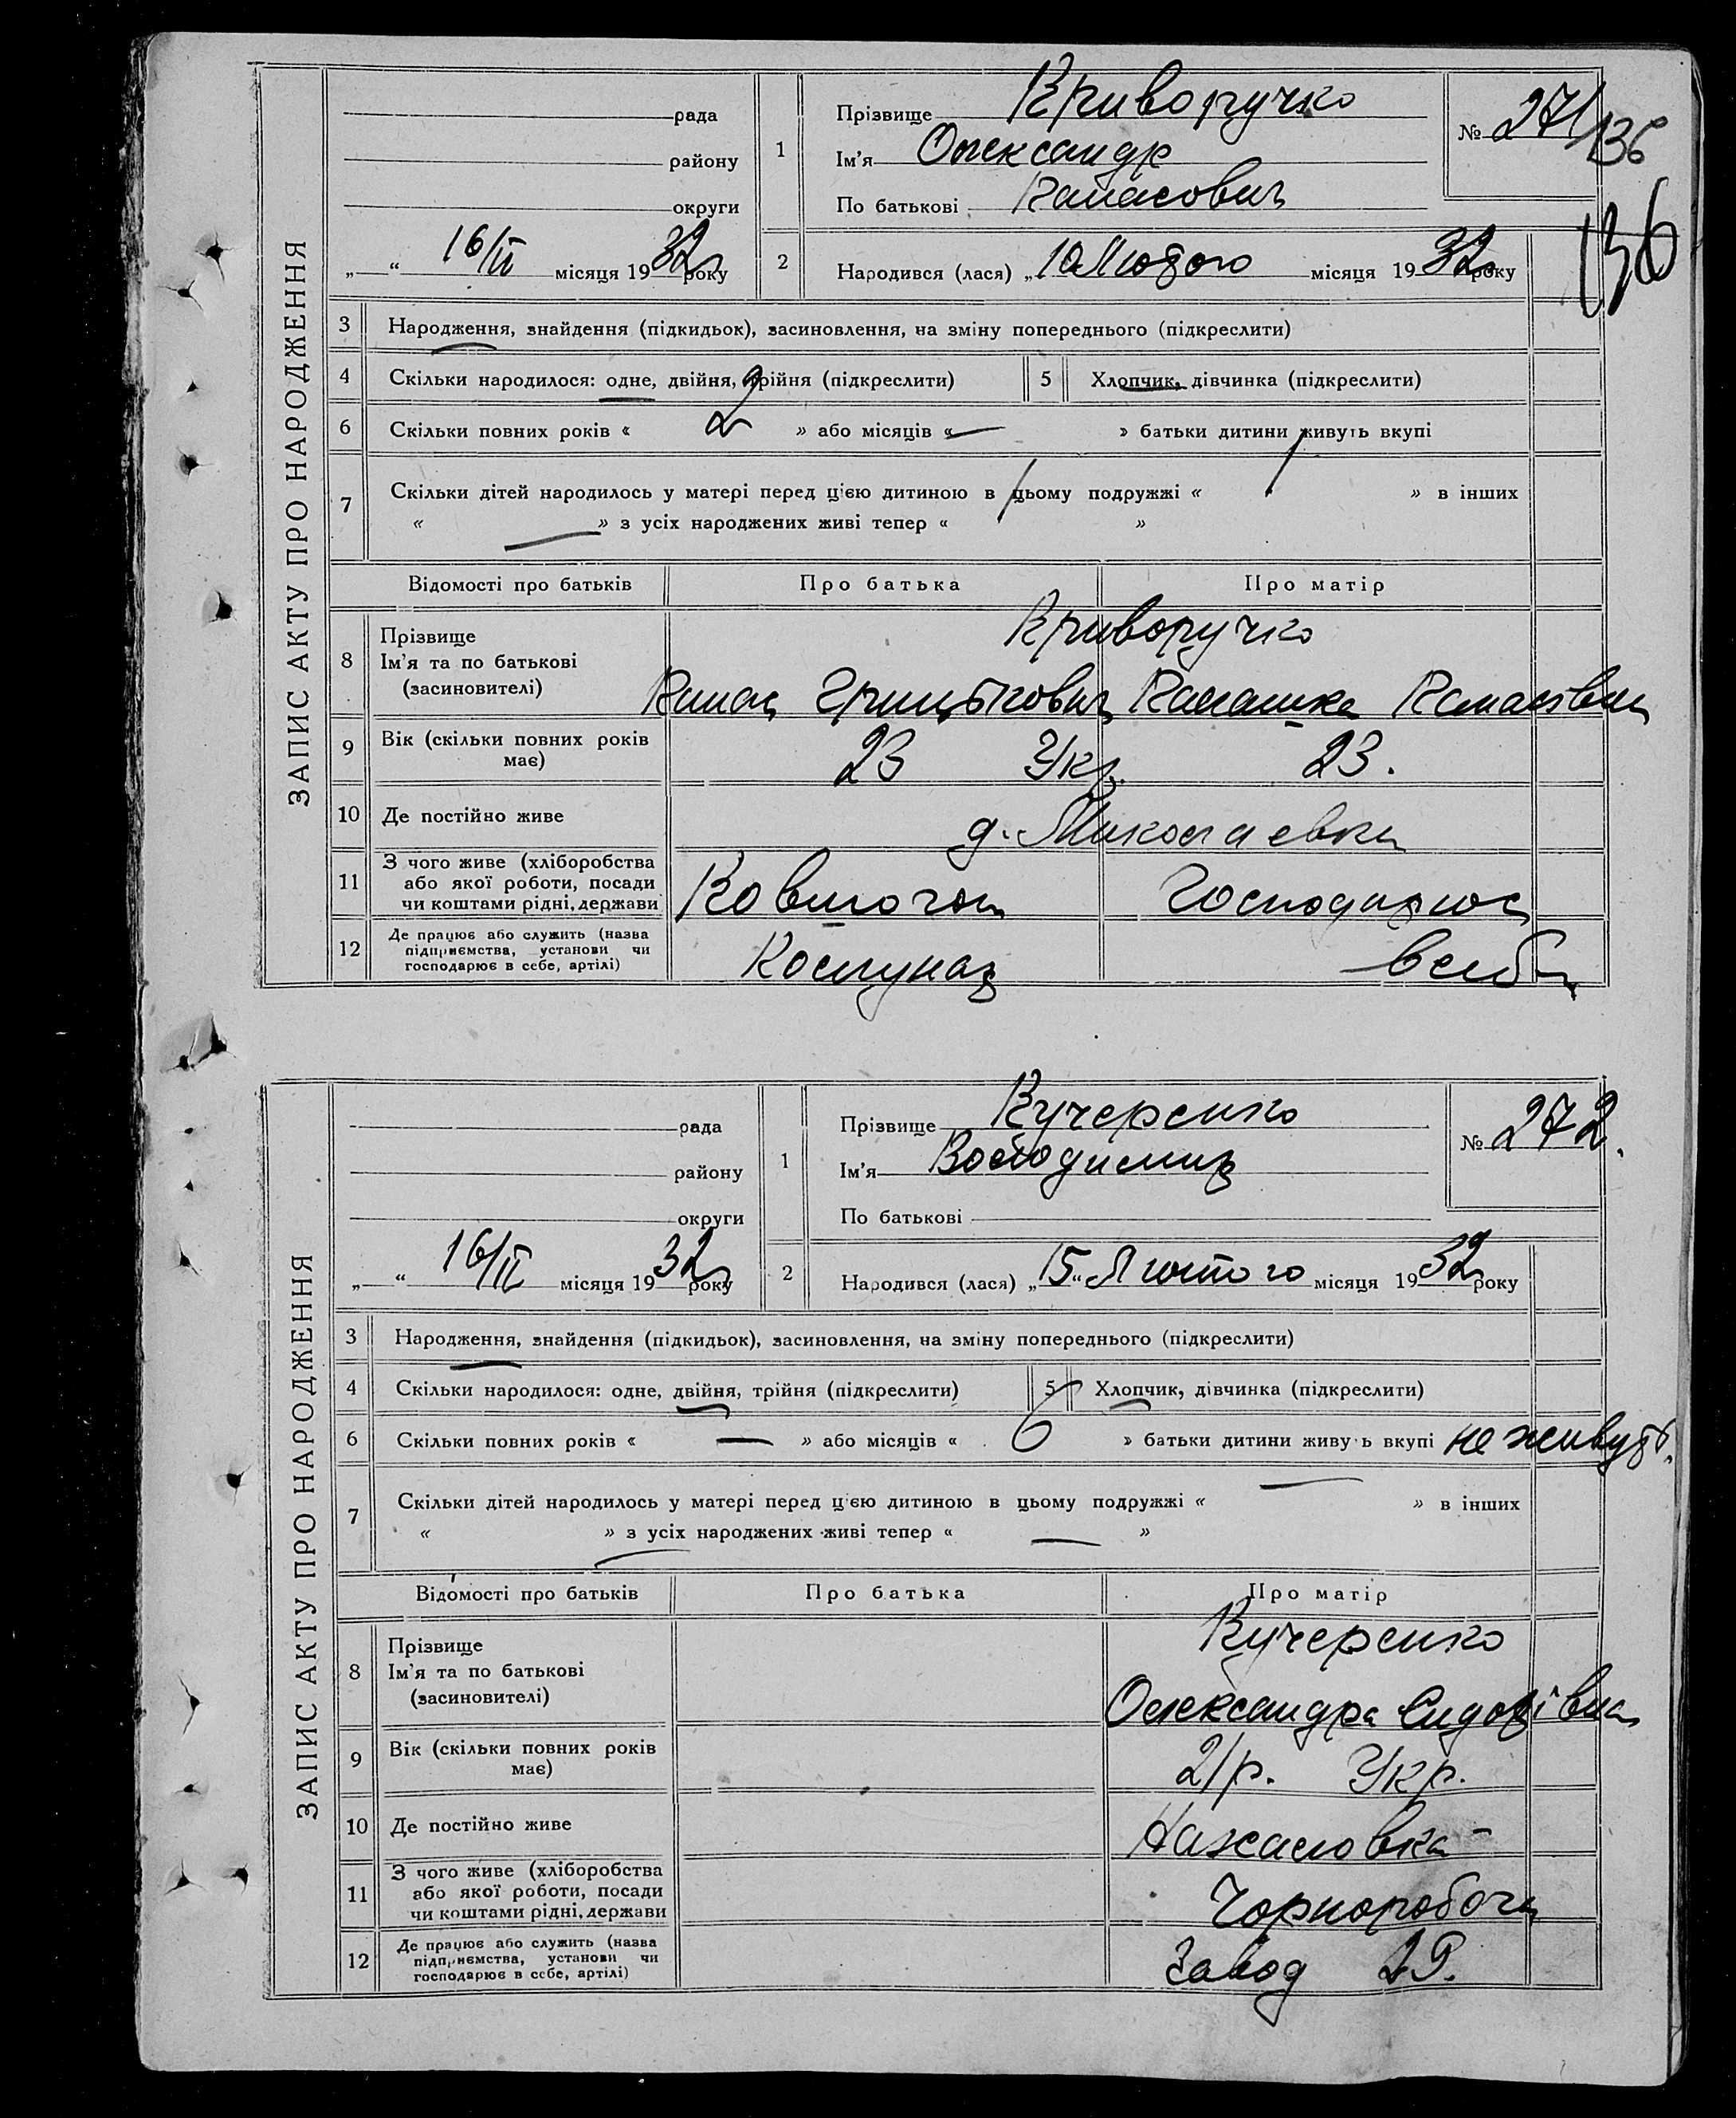 ЗАПИС АКТУ ПРО НАРОДЖЕННЯ
рада
району
округи
„ “ 16/II місяця 1932 року
1 Прізвище Криворучко
Ім'я Олександр
По батькові
№ 271/136
136
2 Народився (лася) „10 Лютого місяця 1932 року
3 Народження, знайдення (підкидьок), засиновлення, на зміну попереднього (підкреслити)
4 Скільки народилося: одне, двійня, трійня (підкреслити) 5 Хлопчик, дівчинка (підкреслити)
6 Скільки повних років « 2 » або місяців « — » батьки дитини живуть вкупі
7 Скільки дітей народилось у матері перед цією дитиною в цьому подружжі « » в інших
« — » з усіх народжених живі тепер « »
Відомості про батьків Про батька Про матір
8 Прізвище Криворучко
Ім'я та по батькові
(засновителі)
9 Вік (скільки повних років має) 23 Укр. 23.
10 Де постійно живе д. Миколаевка
11 З чого живе (хліборобства або якої роботи, посади чи коштами рідні, держави
12 Де працює або служить (назва підприємства, установи чи господарює в себе, артілі)
ЗАПИС АКТУ ПРО НАРОДЖЕННЯ
рада
району
округи
„ “ 16/II місяця 1932 року
1 Прізвище Кучеренко
Ім'я Володимир
По батькові
№ 272.
2 Народився (лася) „15“ Лютого місяця 1932 року
3 Народження, знайдення (підкидьок), засиновлення, на зміну попереднього (підкреслити)
4 Скільки народилося: одне, двійня, трійня (підкреслити) 5 Хлопчик, дівчинка (підкреслити)
6 Скільки повних років « — » або місяців « 6 » батьки дитини живуть вкупі не живуть.
7 Скільки дітей народилось у матері перед цією дитиною в цьому подружжі « — » в інших
« — » з усіх народжених живі тепер « — »
Відомості про батьків Про батька Про матір
8 Прізвище Кучеренко
Ім'я та по батькові Олександра Сидорівна
(засиновителі)
9 Вік (скільки повних років має) 21 р. Укр.
10 Де постійно живе
11 З чого живе (хліборобства або якої роботи, посади чи коштами рідні, держави Чорноробоча
12 Де працює або служить (назва підприємства, установи чи господарює в себе, артілі) Завод 29.